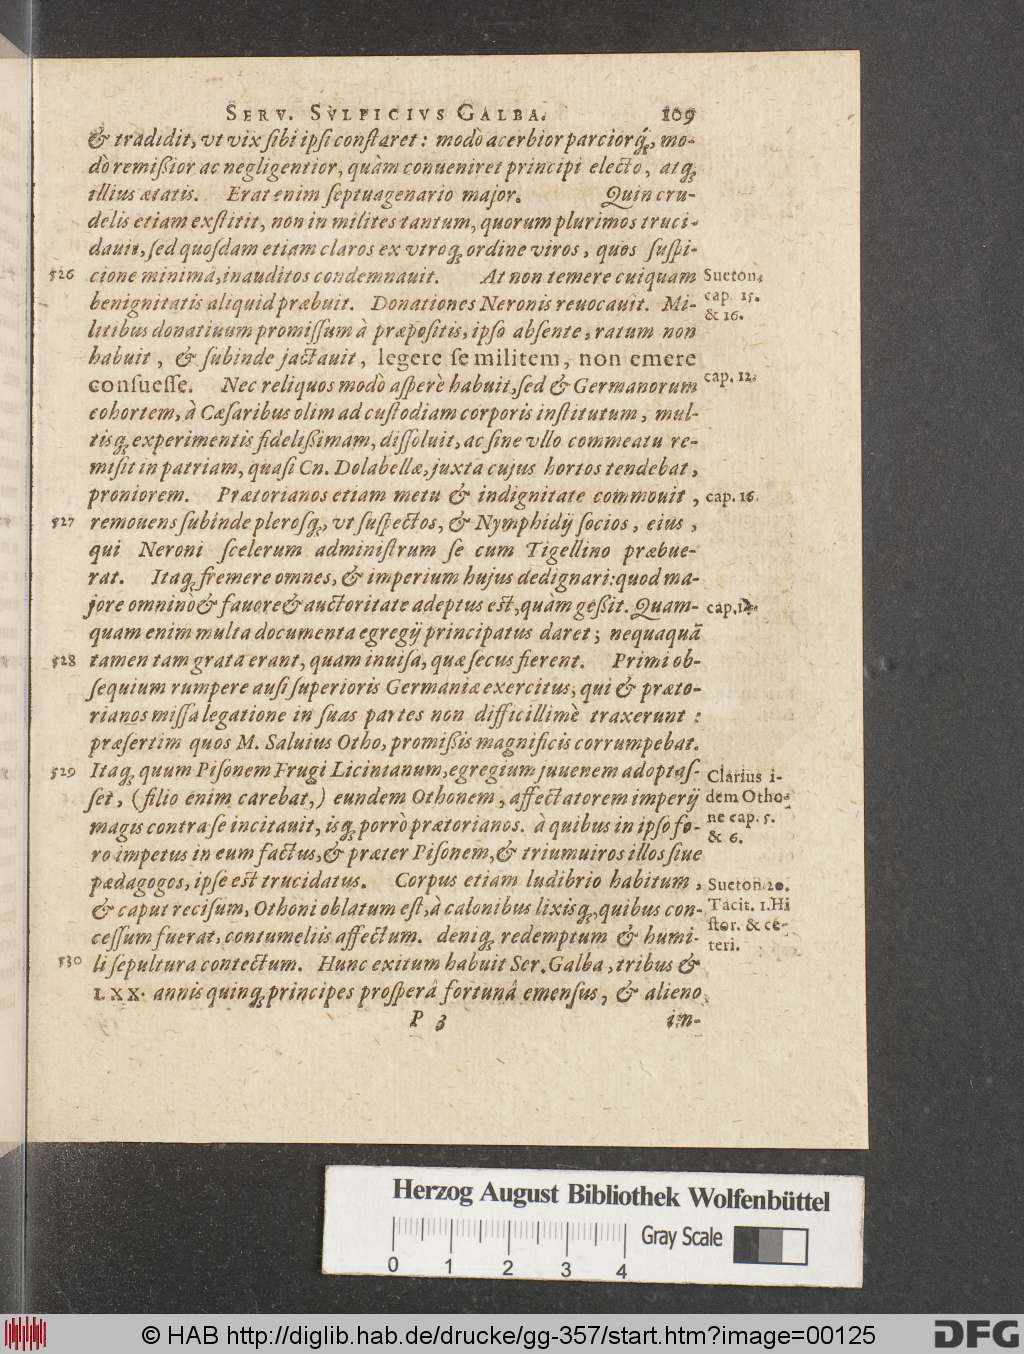 SERV. SVLPICIVS GALBA. 109
& tradidit, vt vix ſibi ipſi conſtaret: modò acerbior parciorq́ꝫ, mo-
dò remißior ac negligentior, quàm conueniret principi electo, atqꝫ
illius ætatis. Erat enim ſeptuagenario major. Quin cru-
delis etiam exſtitit, non in milites tantum, quorum plurimos truci-
dauit, ſed quoſdam etiam claros ex vtroqꝫ ordine viros, quos ſuſpi-
526 cione minimâ, inauditos condemnauit. At non temere cuiquam Sueton.
benignitatis aliquid præbuit. Donationes Neronis reuocauit. Mi- cap. 15.
litibus donatiuum promiſſum à præpoſitis, ipſo abſente, ratum non & 16.
habuit, & ſubinde jactauit, legere ſe militem, non emere
conſueſſe. Nec reliquos modò aſperè habuit, ſed & Germanorum cap. 12.
cohortem, à Cæſaribus olim ad cuſtodiam corporis inſtitutum, mul-
tisqꝫ experimentis fidelißimam, diſſoluit, ac ſine vllo commeatu re-
miſit in patriam, quaſi Cn. Dolabellæ, juxta cujus hortos tendebat,
proniorem. Prætorianos etiam metu & indignitate commouit, cap. 16.
527 remouens ſubinde plerosqꝫ, vt ſuſpectos, & Nymphidij ſocios, eius,
qui Neroni ſcelerum adminiſtrum ſe cum Tigellino præbue-
rat. Itaqꝫ fremere omnes, & imperium hujus dedignari: quod ma-
jore omninò & fauore & auctoritate adeptus eſt, quàm geßit. Quam- cap. 14.
quam enim multa documenta egregij principatus daret; nequaquã
528 tamen tam grata erant, quam inuiſa, quæ ſecus fierent. Primi ob-
ſequium rumpere auſi ſuperioris Germaniæ exercitus, qui & præto-
rianos miſſa legatione in ſuas partes non difficillimè traxerunt:
præſertim quos M. Saluius Otho, promißis magnificis corrumpebat.
529 Itaqꝫ quum Piſonem Frugi Licinianum, egregium juuenem adoptaſ- Clarius i-
ſet, (filio enim carebat,) eundem Othonem, affectatorem imperij dem Otho-
magis contra ſe incitauit, isqꝫ porrò prætorianos. à quibus in ipſo fo- ne cap. 5.
ro impetus in eum factus, & præter Piſonem, & triumuiros illos ſiue & 6.
pædagogos, ipſe eſt trucidatus. Corpus etiam ludibrio habitum, Sueton. 20.
& caput reciſum, Othoni oblatum eſt, à calonibus lixisqꝫ, quibus con- Tacit. 1. Hi
ceſſum fuerat, contumeliis affectum. deniqꝫ redemptum & humi- ſtor. & ce-
530 li ſepultura contectum. Hunc exitum habuit Ser. Galba, tribus & teri.
LXX. annis quinqꝫ principes proſperâ fortunâ emenſus, & alieno
P 3 im-
Herzog August Bibliothek Wolfenbüttel
0 1 2 3 4 Gray Scale
© HAB http://diglib.hab.de/drucke/gg-357/start.htm?image=00125 DFG